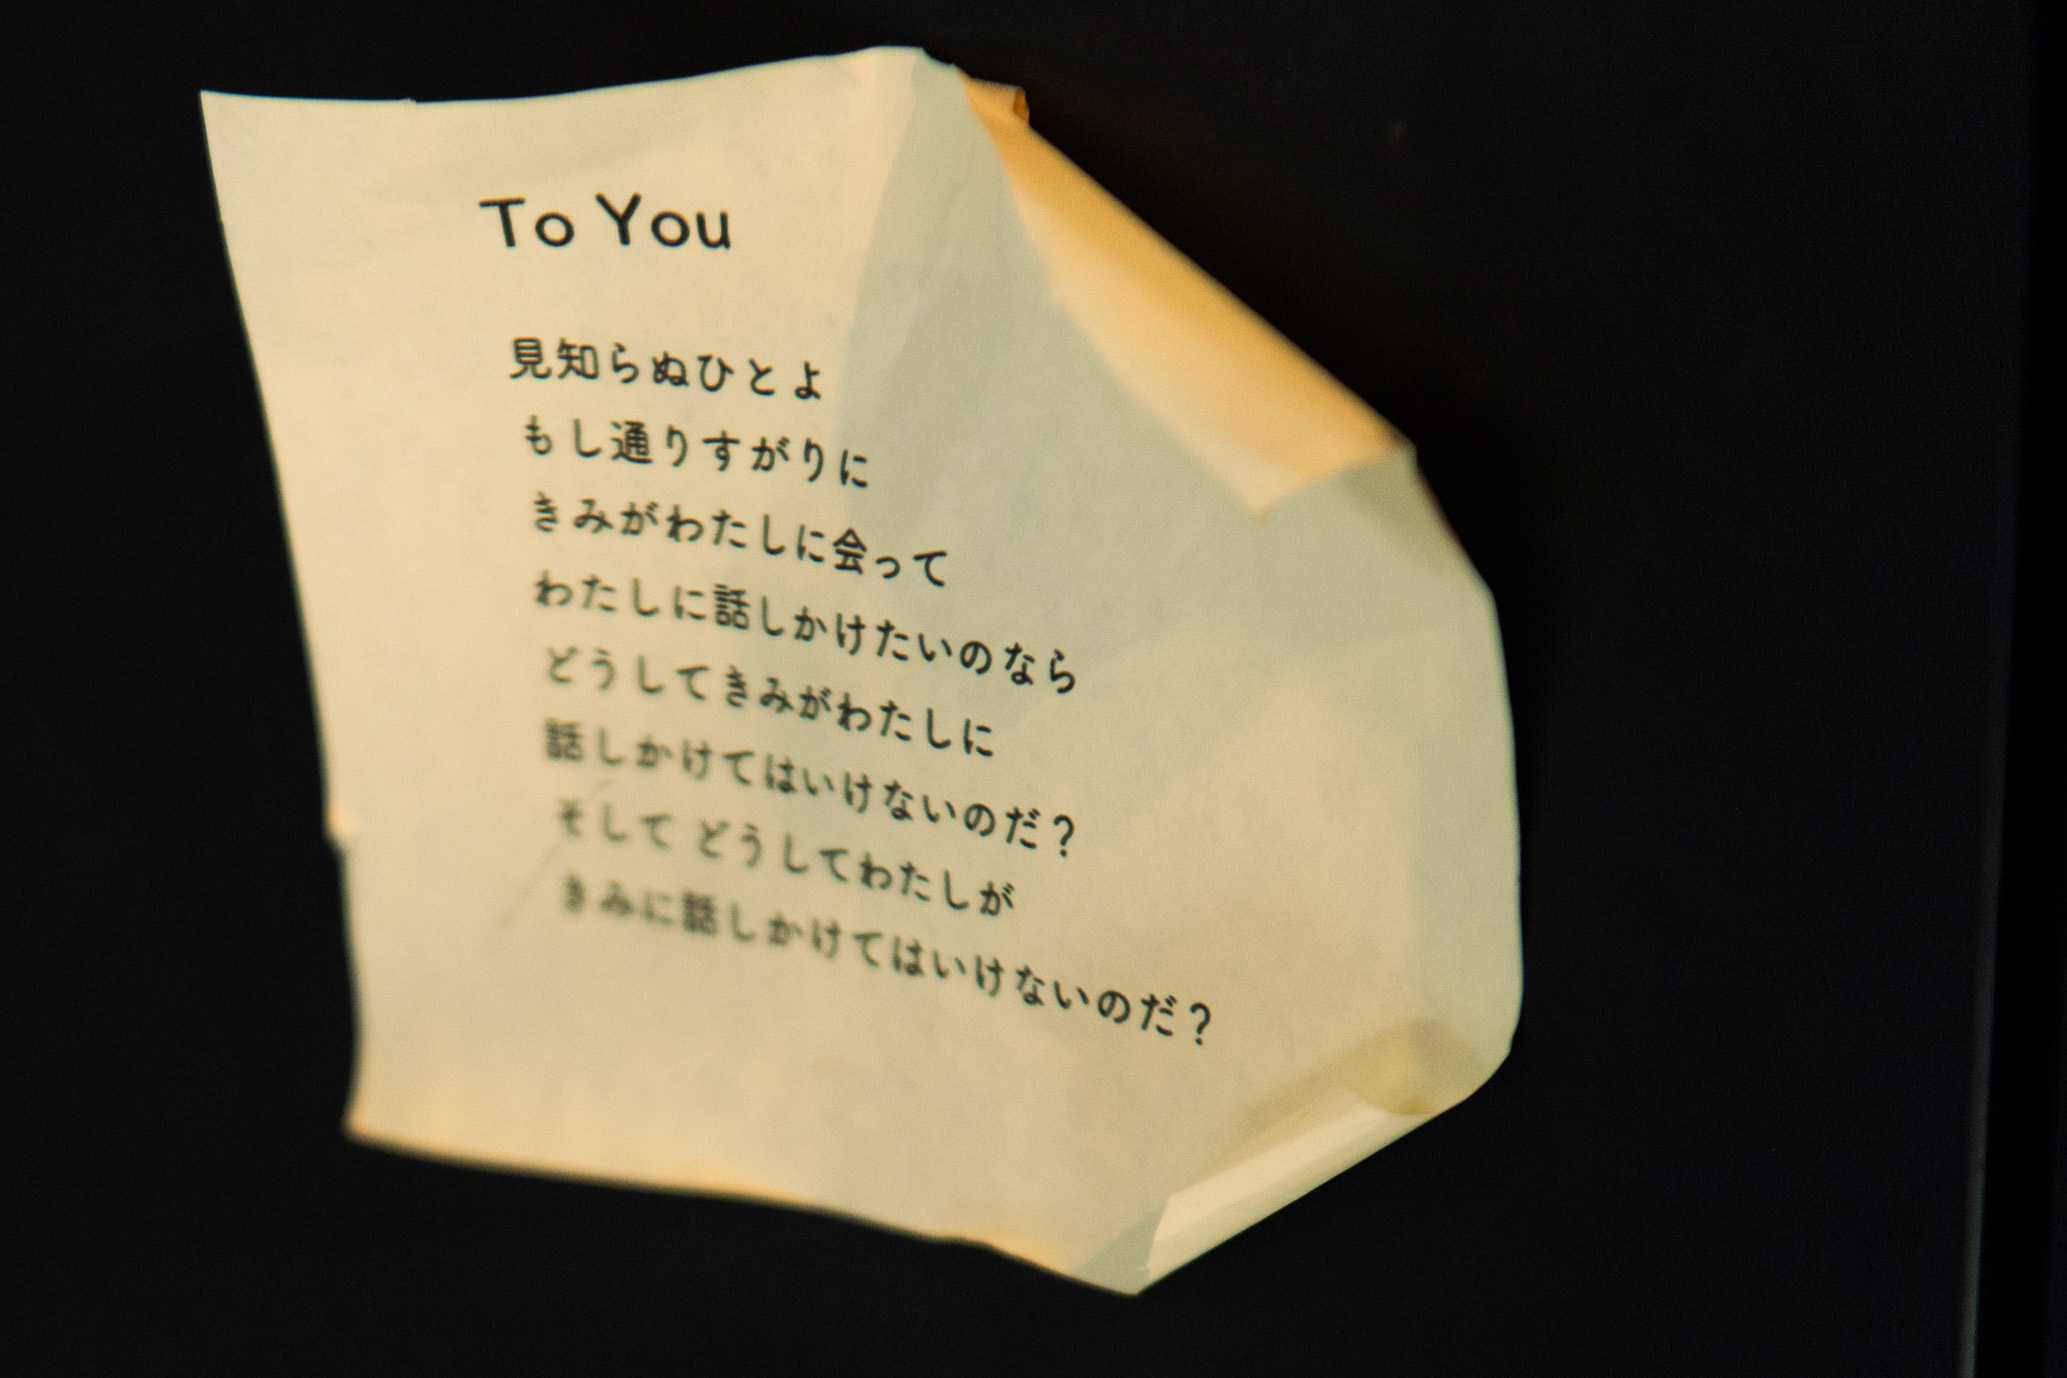 To You
見知らぬひとよ
もし通りすがりに
きみがわたしに会って
わたしに話しかけたいのなら
どうしてきみがわたしに
話しかけてはいけないのだ?
そして どうしてわたしが
きみに話しかけてはいけないのだ?